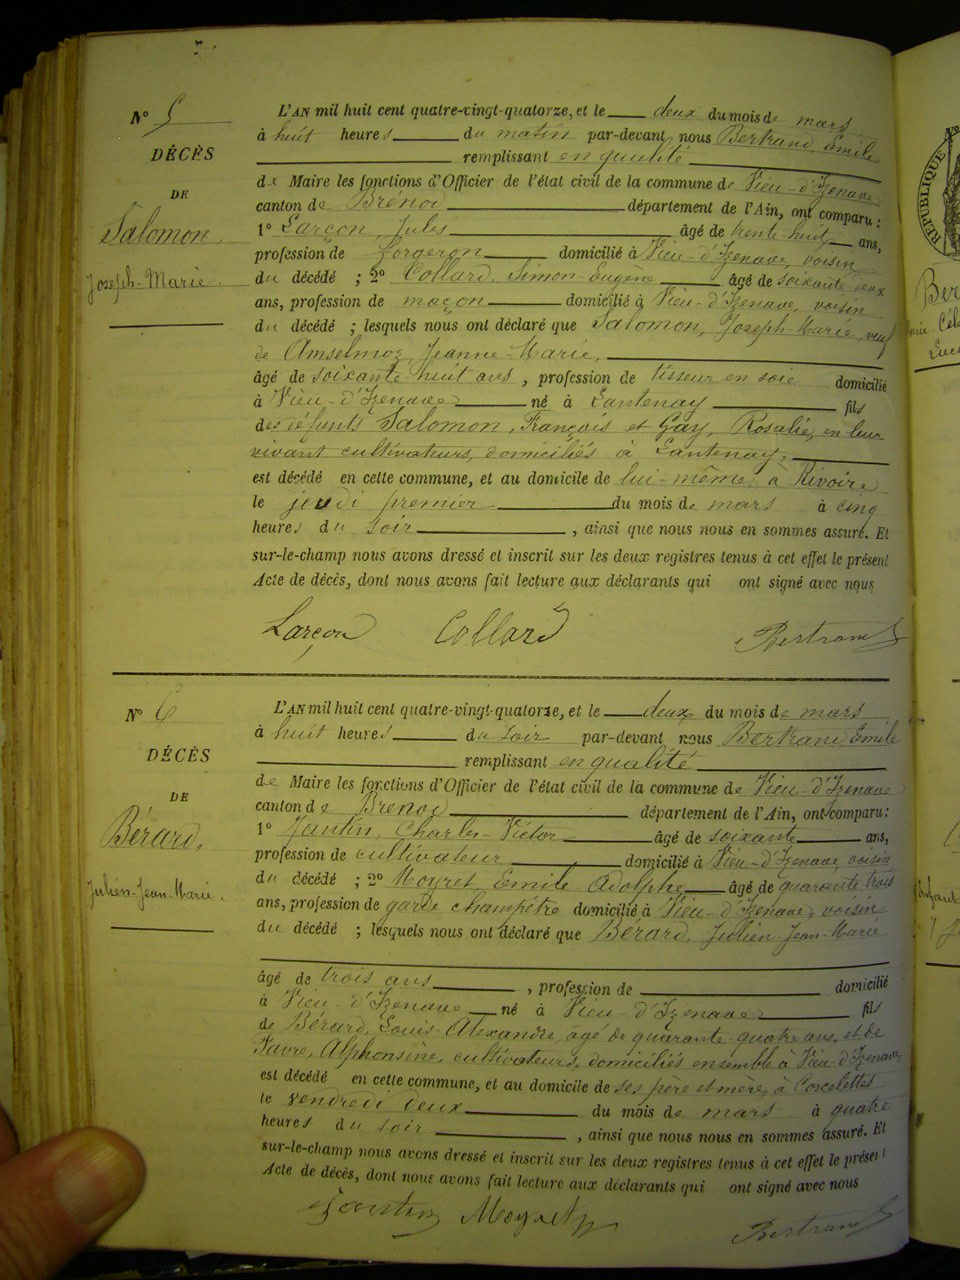 N° 5
DÉCÈS
DE
Salomon,
Joseph-Marie.
L'AN mil huit cent quatre-vingt-quatorze, et le deux du mois de mars
à huit heures du matin par-devant nous Bertrand, Emile
remplissant en qualité
de Maire les fonctions d'Officier de l'état civil de la commune de Vieu-d'Izenave
canton de Brénod département de l'Ain, ont comparu :
1° Larçon, Jules âgé de trente-huit ans,
profession de forgeron domicilié à Vieu-d'Izenave, voisin
du décédé ; 2° Collard, Simon-Eugène âgé de soixante-deux
ans, profession de maçon domicilié à Vieu-d'Izenave, voisin
du décédé ; lesquels nous ont déclaré que Salomon, Joseph-Marie, veuf
de Anselmoz, Jeanne-Marie,
âgé de soixante-huit ans, profession de tisseur en soie domicilié
à Vieu-d'Izenave né à Lantenay fils
des défunts Salomon, François et Gay, Rosalie, en leur
vivant cultivateurs, domiciliés à Lantenay,
est décédé en cette commune, et au domicile de lui-même, à Rivoire
le jeudi premier du mois de mars à cinq
heures du soir, ainsi que nous nous en sommes assuré. Et
sur-le-champ nous avons dressé et inscrit sur les deux registres tenus à cet effet le présent
Acte de décès, dont nous avons fait lecture aux déclarants qui ont signé avec nous
Larçon Collard Bertrand
N° 6
DÉCÈS
DE
Bérard,
Julien-Jean-Marie.
L'AN mil huit cent quatre-vingt-quatorze, et le deux du mois de mars
à huit heures du soir par-devant nous Bertrand Emile
remplissant en qualité
de Maire les fonctions d'Officier de l'état civil de la commune de Vieu-d'Izenave
canton de Brénod département de l'Ain, ont comparu :
1° Jantin, Charles-Victor âgé de soixante ans,
profession de cultivateur domicilié à Vieu-d'Izenave, voisin
du décédé ; 2° Moyret, Emile Adolphe âgé de quarante-trois
ans, profession de garde champêtre domicilié à Vieu-d'Izenave, voisin
du décédé ; lesquels nous ont déclaré que Bérard, Julien-Jean-Marie
âgé de trois ans, profession de domicilié
à Vieu-d'Izenave né à Vieu-d'Izenave fils
de Bérard, Louis-Alexandre, âgé de quarante-quatre ans, et de
Favre, Alphonsine, cultivateurs, domiciliés ensemble à Vieu-d'Izenave,
est décédé en cette commune, et au domicile de ses père et mère, à Corcelettes
le vendredi deux du mois de mars à quatre
heures du soir, ainsi que nous nous en sommes assuré. Et
sur-le-champ nous avons dressé et inscrit sur les deux registres tenus à cet effet le présent
Acte de décès, dont nous avons fait lecture aux déclarants qui ont signé avec nous
Jantin Moyret Bertrand
RÉPUBLIQUE